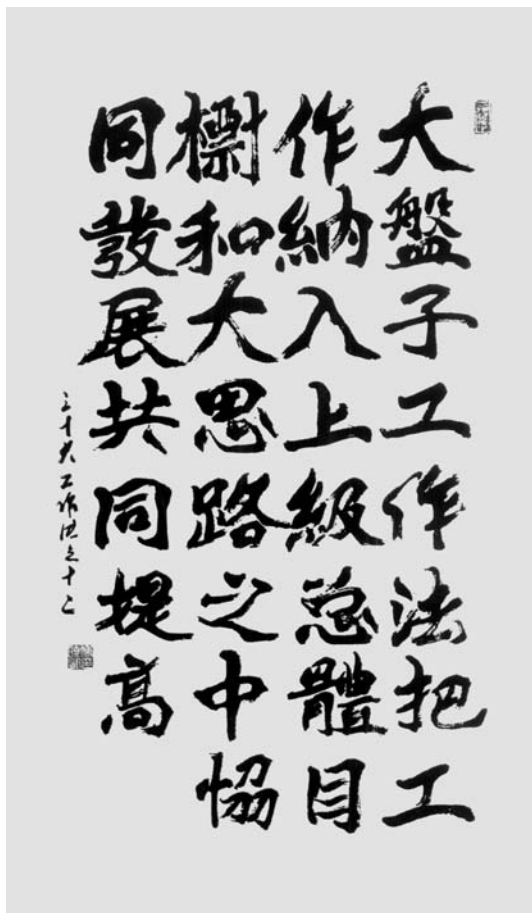 大盤子工作法把工
作納入上級总體目
標和大思路之中恊
同發展共同提高
三十六工作法之十二